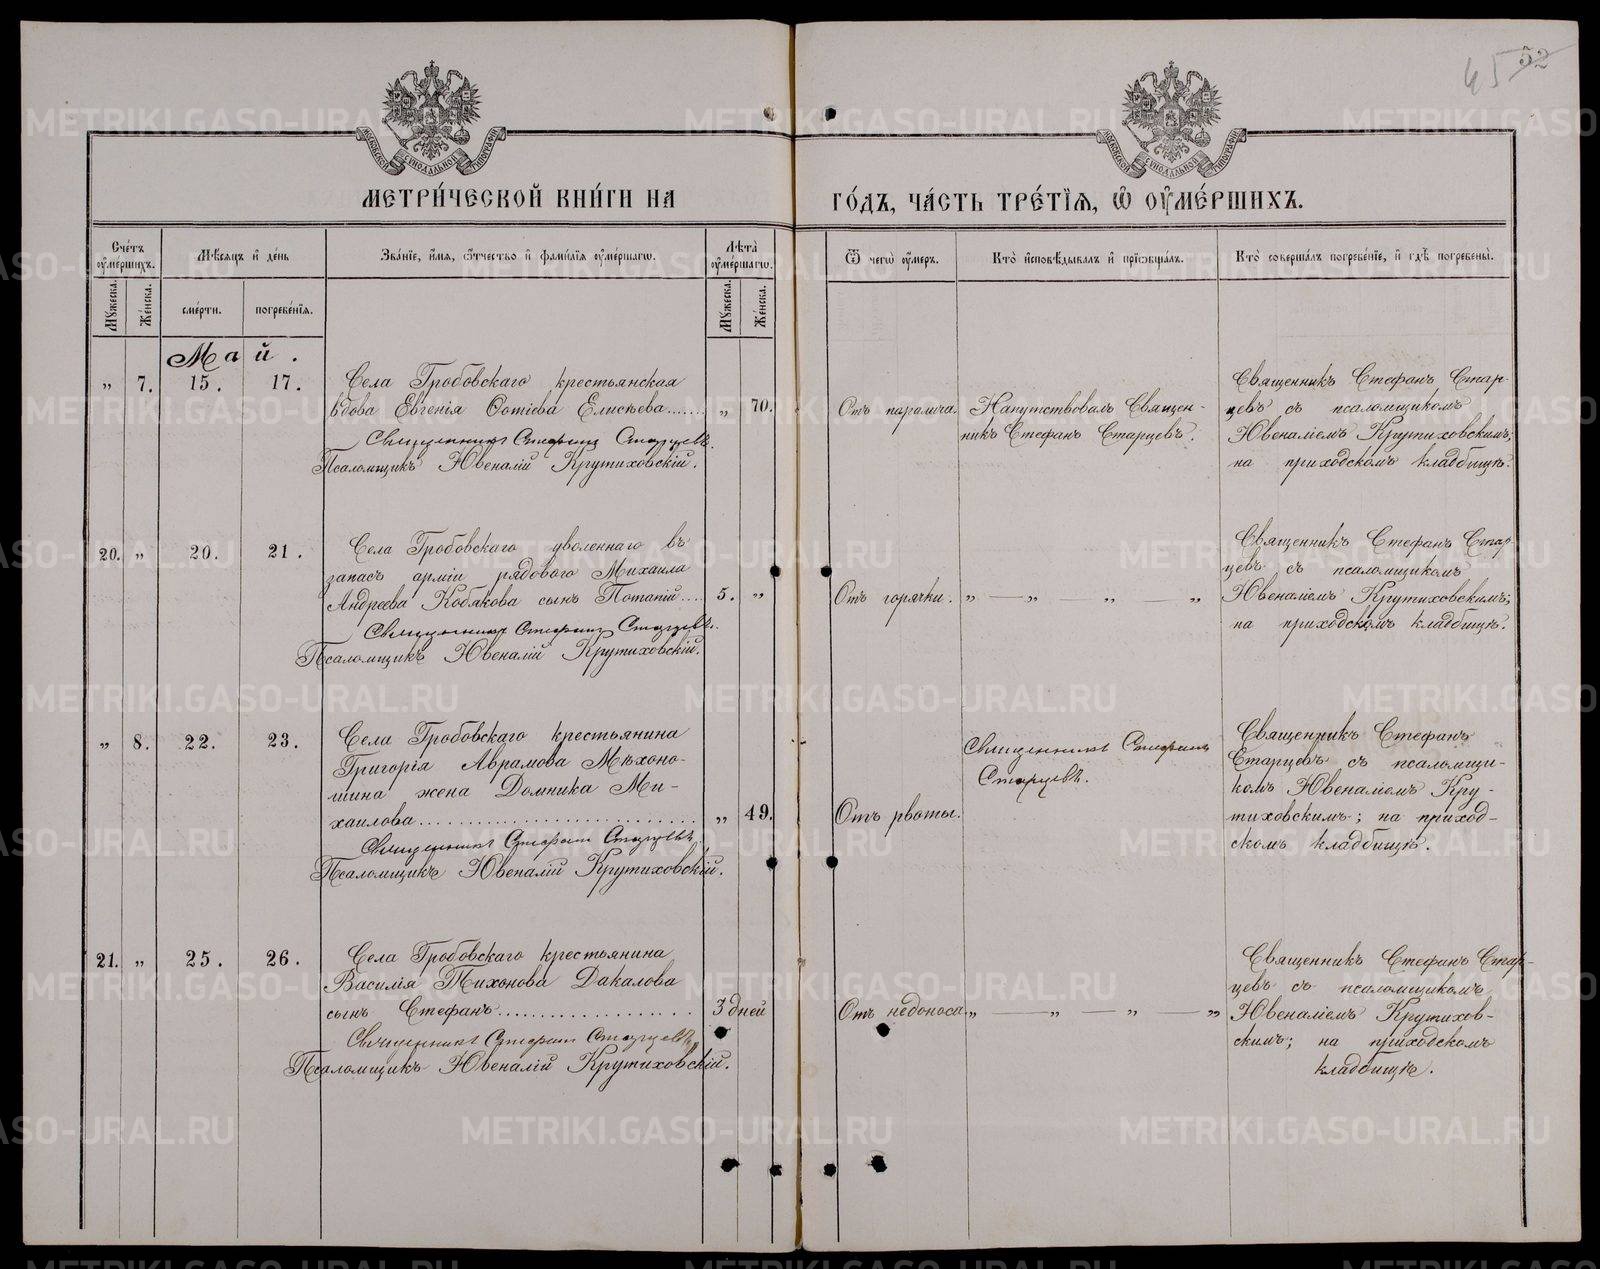 45 52
МОСКОВСКОЙ СѴНОДАЛЬНОЙ ТИПОГРАФІИ
МОСКОВСКОЙ СѴНОДАЛЬНОЙ ТИПОГРАФІИ
МЕТРИ́ЧЕСКОЙ КНИ́ГИ НА ГО́ДЪ, ЧА́СТЬ ТРЕ́ТІѦ, Ѡ҆ ОУ҆МЕ́РШИХЪ.
Сче́тъ оу҆ме́ршихъ.
Мꙋ́жеска.
Же́нска.
Мѣ́сѧцъ и҆ де́нь
сме́рти.
погребе́нїѧ.
Зва́нїе, и҆́мѧ, ѻ҆́тчество и҆ фами́лїѧ оу҆ме́ршагѡ.
Лѣ́та оу҆ме́ршагѡ.
Мꙋ́жеска.
Же́нска.
Ѿ чегѡ̀ оу҆́меръ.
Кто̀ и҆сповѣ́дывалъ и҆ прїѡбща́лъ.
Кто̀ соверша́лъ погребе́нїе, и҆ гдѣ̀ погребены̀.
Май.
„ 7. 15. 17.
Села Гробовскаго крестьянская
вдова Евгенія Фотіева Елисѣева....... „ 70.
Священникъ Стефанъ Старцевъ.
Псаломщикъ Ювеналій Крутиховскій.
Отъ паралича.
Напутствовалъ Священ-
никъ Стефанъ Старцевъ.
Священникъ Стефанъ Стар-
цевъ съ псаломщикомъ
Ювеналіемъ Крутиховскимъ;
на приходскомъ кладбищѣ.
20. „ 20. 21.
Села Гробовскаго уволеннаго въ
запасъ арміи рядового Михаила
Андреева Кобякова сынъ Потапій.... 5. „
Священникъ Стефанъ Старцевъ.
Псаломщикъ Ювеналій Крутиховскій.
Отъ горячки.
„ — „ — „ — „
Священникъ Стефанъ Стар-
цевъ съ псаломщикомъ
Ювеналіемъ Крутиховскимъ;
на приходскомъ кладбищѣ.
„ 8. 22. 23.
Села Гробовскаго крестьянина
Григорія Аврамова Мѣхоно-
шина жена Домника Ми-
хаилова.............................. „ 49.
Священникъ Стефанъ Старцевъ.
Псаломщикъ Ювеналій Крутиховскій.
Отъ рвоты.
Священникъ Стефанъ
Старцевъ.
Священникъ Стефанъ
Старцевъ съ псаломщи-
комъ Ювеналіемъ Кру-
тиховскимъ; на приход-
скомъ кладбищѣ.
21. „ 25. 26.
Села Гробовскаго крестьянина
Василія Тихонова Дакалова
сынъ Стефанъ.................... 3 дней
Священникъ Стефанъ Старцевъ
Псаломщикъ Ювеналій Крутиховскій.
Отъ недоноса.
„ — „ — „ — „
Священникъ Стефанъ Стар-
цевъ съ псаломщикомъ
Ювеналіемъ Крутихов-
скимъ; на приходскомъ
кладбищѣ.
METRIKI.GASO-URAL.RU